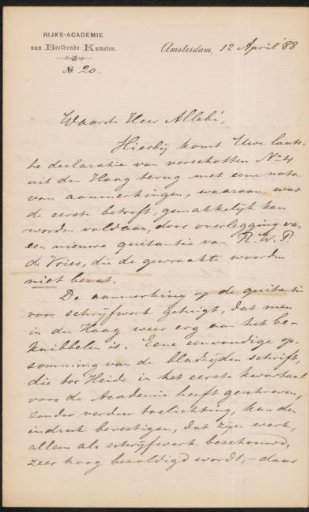 RIJKS-ACADEMIE
van Beeldende Kunsten.
№ 20.
Amsterdam, 12 April '88
Waarde Heer Allebé,
Hierbij komt Uwe laatste
declaratie van verschotten N° 4
uit den Haag terug met een nota
van aanmerkingen, waaraan wat
de eerste betreft, gemakkelijk kan
worden voldaan, door overlegging van
een nieuwe quitantie van R. W. P.
de Vries, die de gewraakte woorden
niet bevat.
De aanmerking op de quitantie
voor schrijfwerk getuigt, dat men
in den Haag weer erg aan het be-
knibbelen is. Eene eenvoudige op-
somming van de bladzijden schrift,
die ter Heide in het eerste kwartaal
voor de Academie heeft geschreven,
zonder verdere toelichting, kan den
indruk bevestigen, dat zijn werk,
alleen als schrijfwerk beschouwd,
zeer hoog bezoldigd wordt, - daar